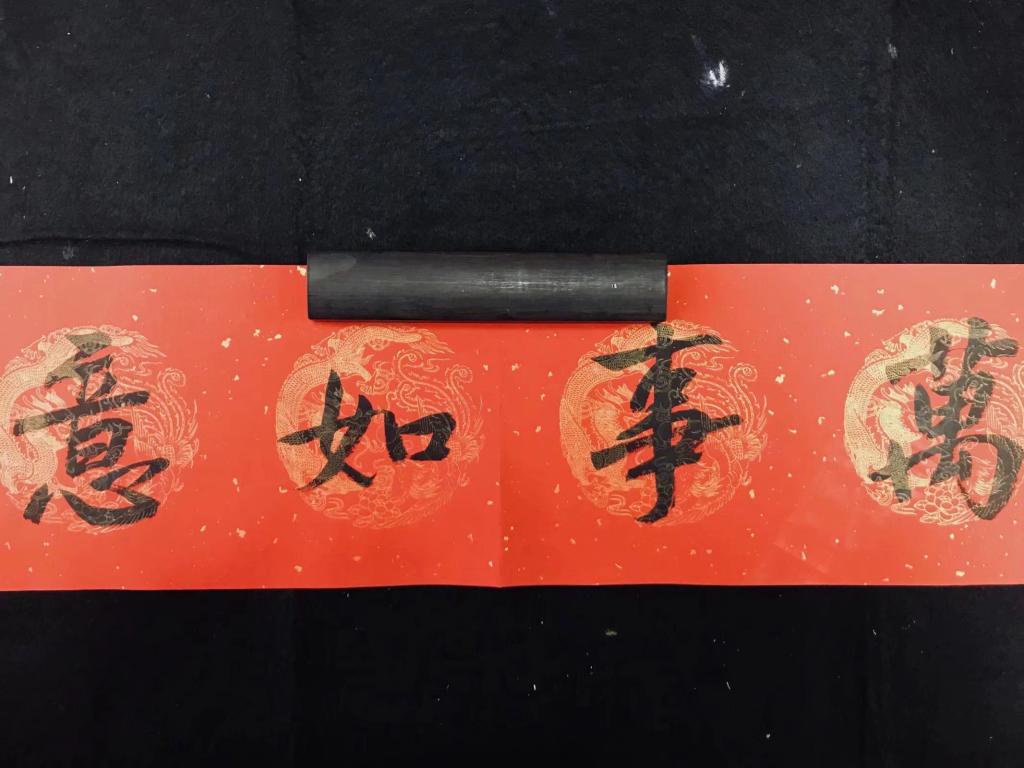 萬事如意